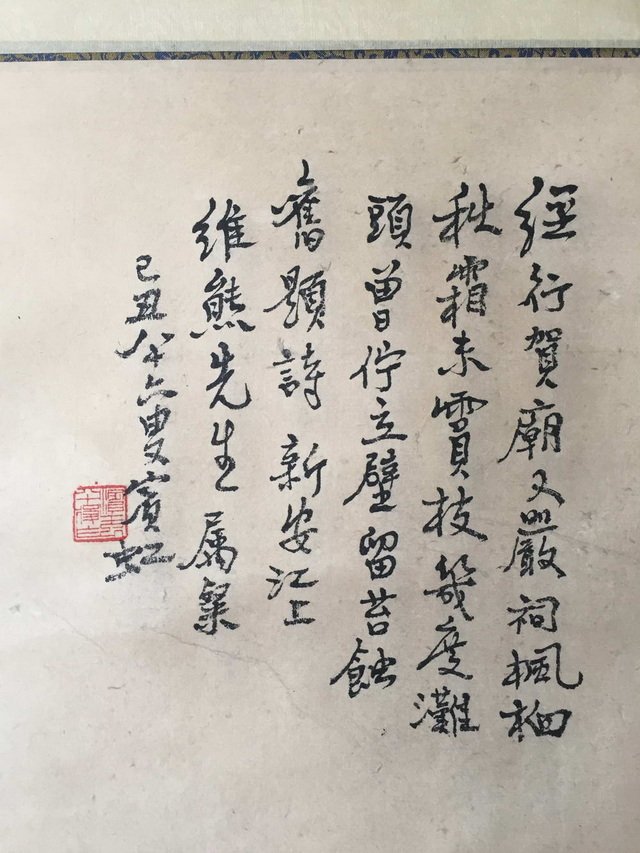 經行賀廟又嚴祠楓桕
秋霜未霣枝幾度灘
頭曾佇立壁留苔蝕
舊題詩 新安江上
維熊先生屬粲
己丑八十六叟賓虹